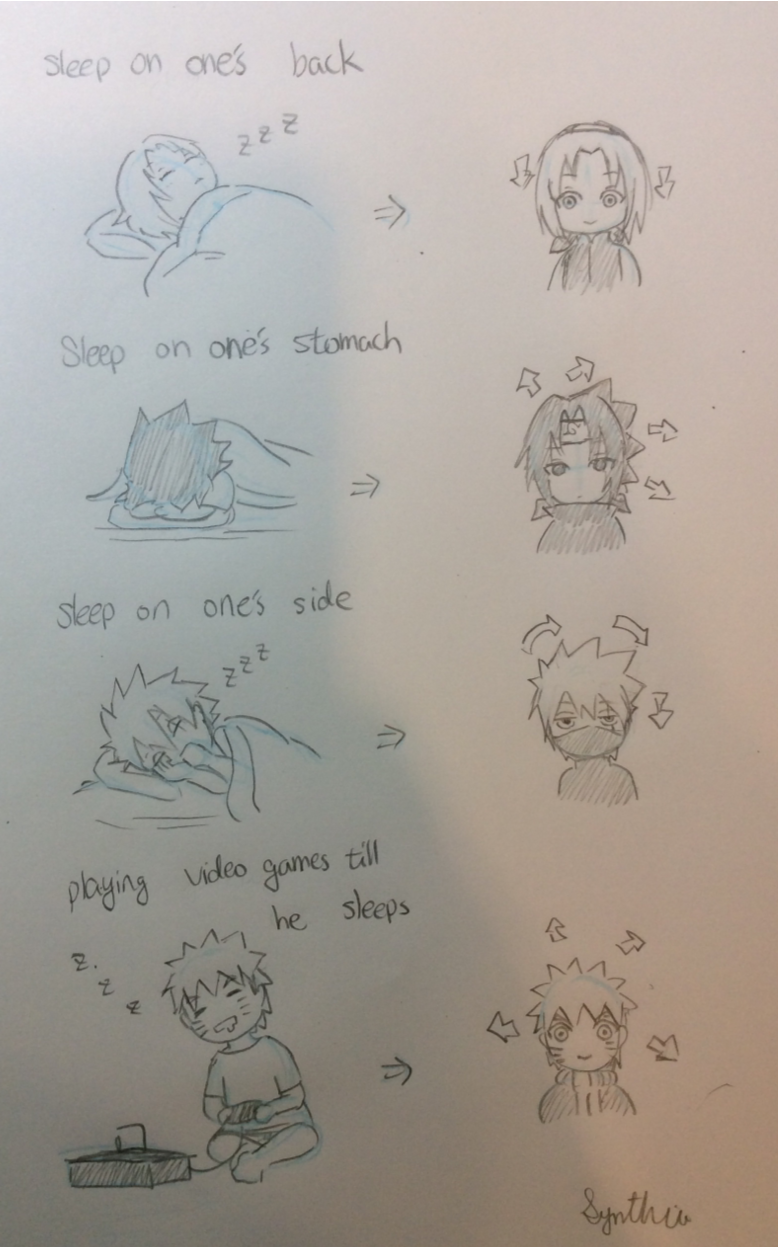 sleep on one's back
z z z
Sleep on one's stomach
sleep on one's side
z z z
playing video games till
he sleeps
z.
z
z
Synthia